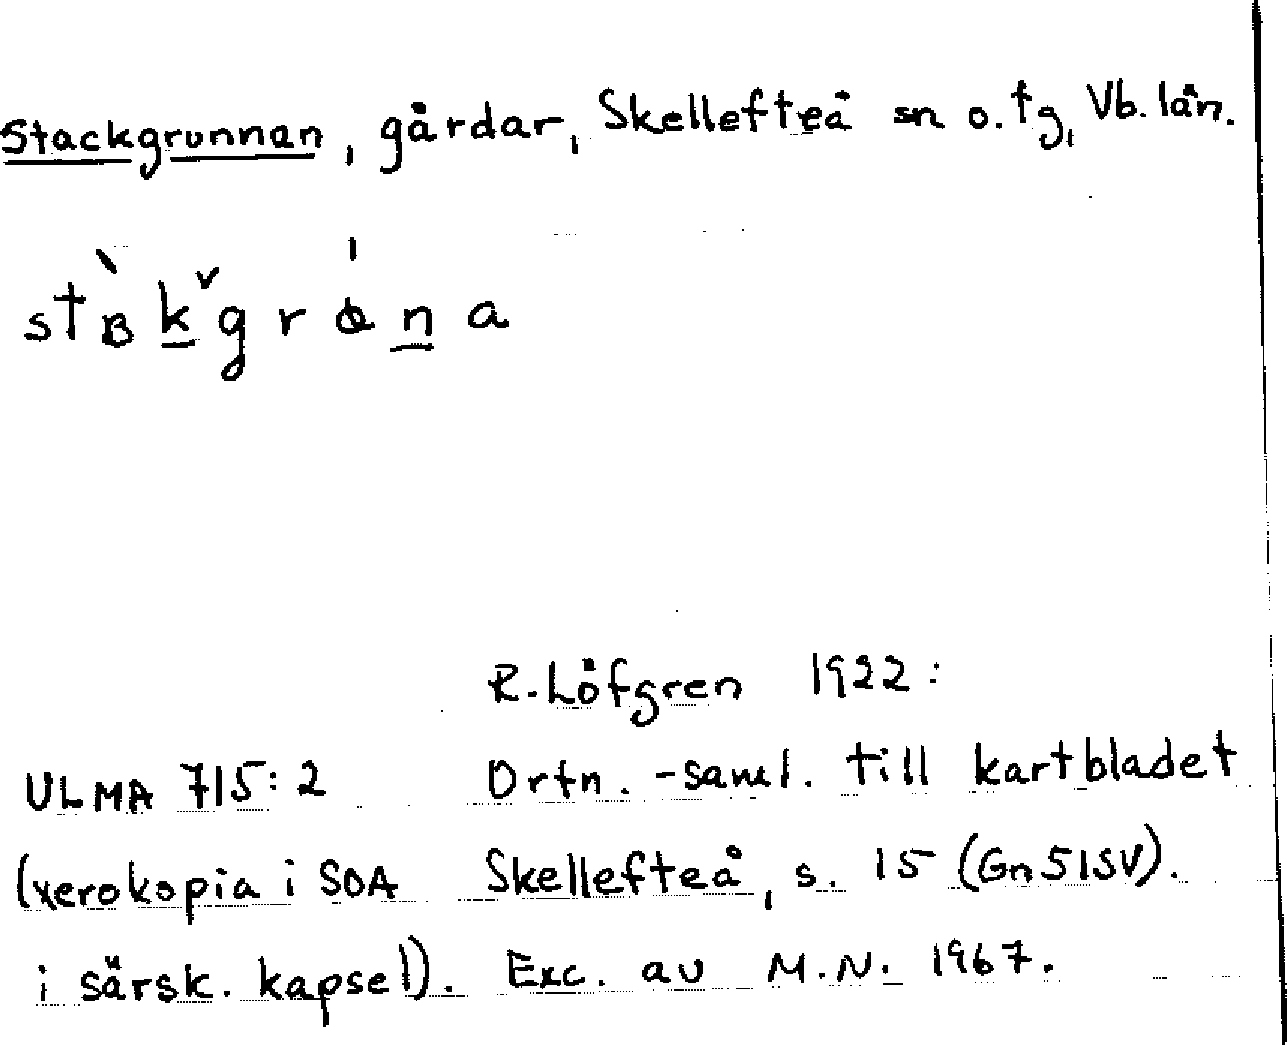 Stackgrunnan, gårdar, Skellefteå sn o. tg, Vb. län.
R. Löfgren 1922:
ULMA 715:2 Ortn.-saml. till kartbladet
(xerokopia i SOA Skellefteå, s. 15 (Gn 51SV).
i särsk. kapsel). Exc. av M.N. 1967.